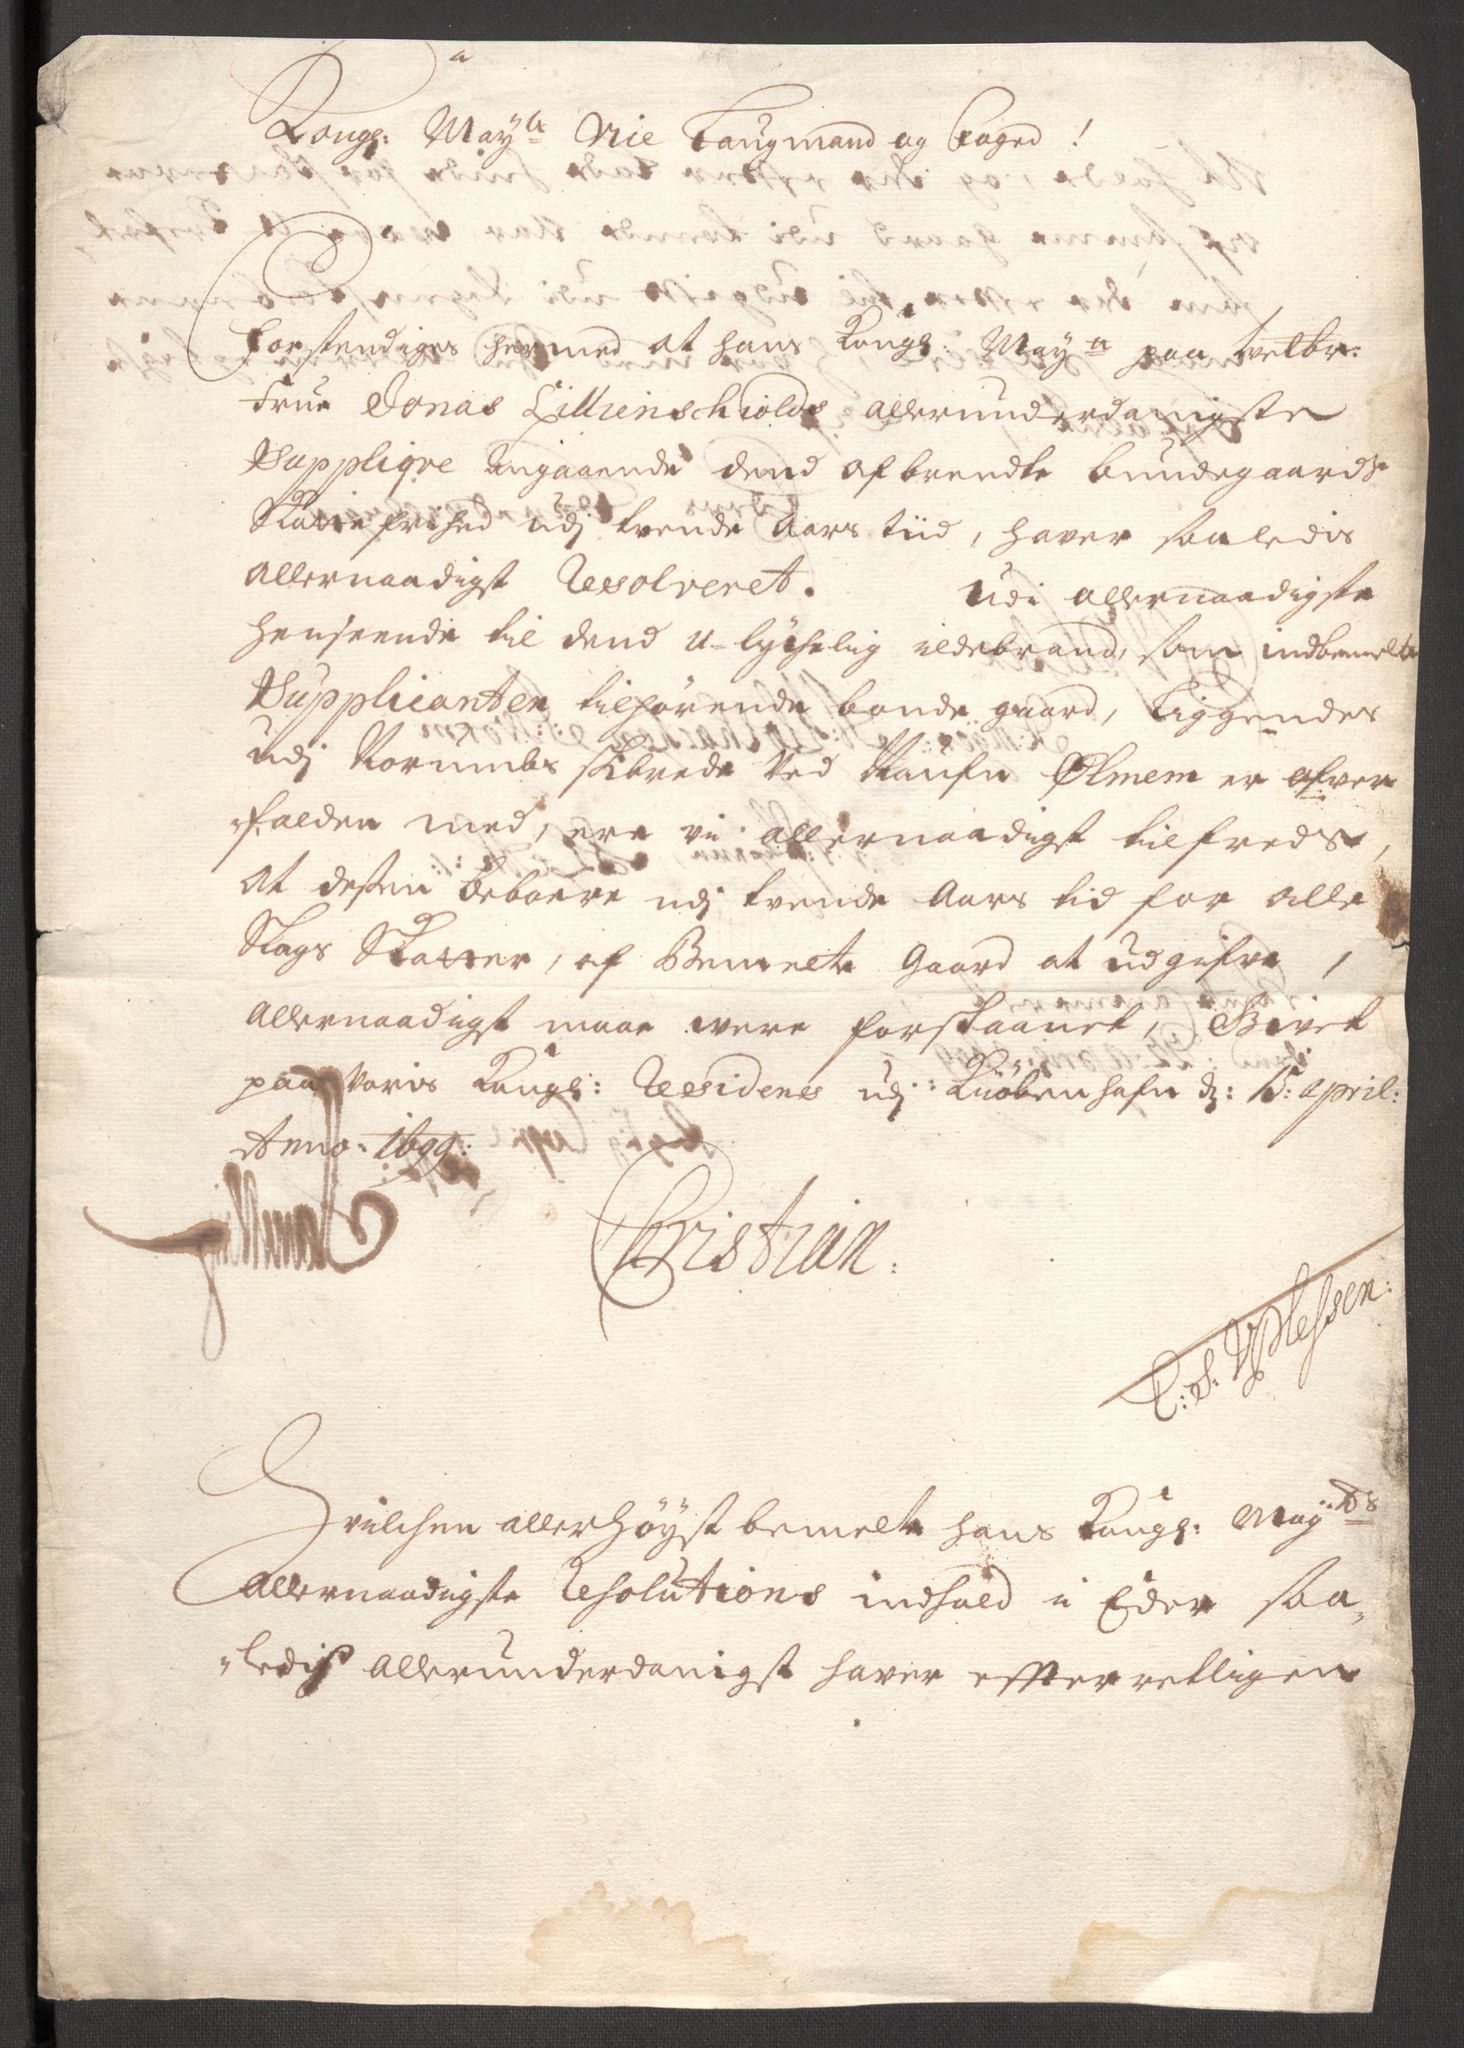 Kongl: May.tz Vice Laugmand og Foged!
Forstendiges hermed at hans Kongl: May.tt paa velbr:
Frue Jonas Lillienschiolds allerunderdanigste
Suppliqve angaaende dend afbrendte bundegaards
Skattefrihed udj tvende Aars tiid, haver saaledis
allernaadigst Resolveret. Udi allernaadigste
henseende til dend u-lychelig ildebrand, som indbemelte
Supplicanten tilhørende bonde gaard, Liggendes
udj Norumbs skibrede ved Nafn Ølmem er ofver
falden med, ere vi allernaadigst tilfreds,
at dessen Beboere udj tvende Aars tid for alle
Slags Skatter, af Bemelte Gaard at udgifve,
allernaadigst maae were forskaanet, Givet
paa Voris Kongl: Residens udj Kiøbenhafn d: 15: april:
Anno: 1699:
Christian:
C: S: V Plessen:
Hvilchen allerhøyst bemelte hans Kongl: May:tds
allernaadigste Resolutions indhold i Eder saa-
ledis allerunderdanigst haver effterrettligen